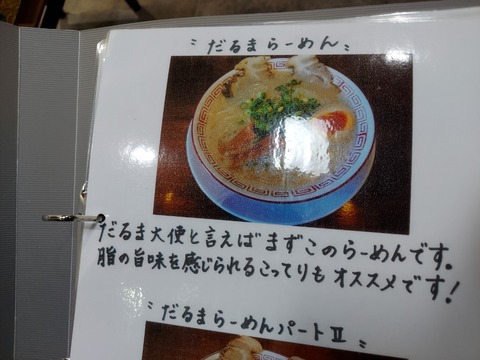 〝だるまらーめん〟
だるま大使と言えばまずこのらーめんです。
脂の旨味を感じられるこってりもオススメです!
〝だるまらーめんパートⅡ〟